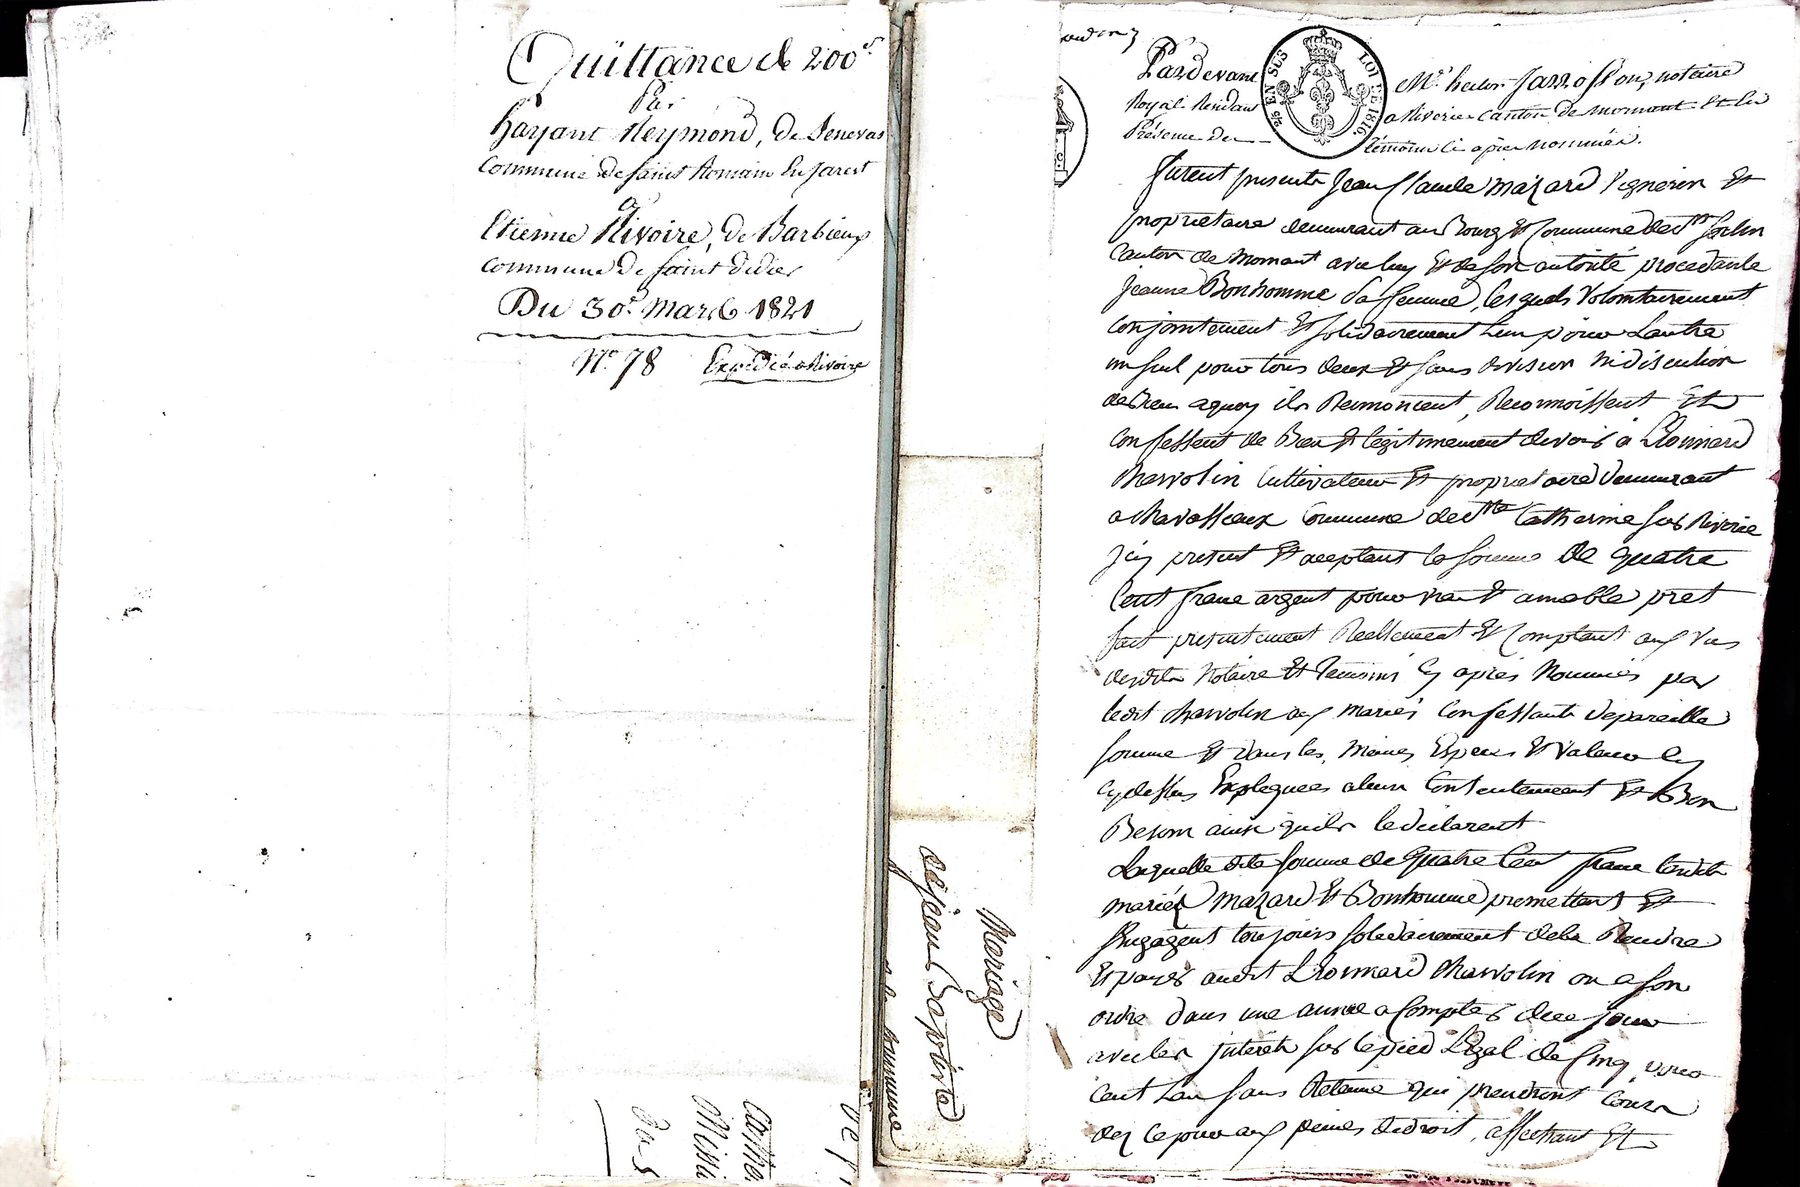 Quittance de 200f
Par
hayant Reymond, de Senevas
Commune de saint Romain En Jarest
a
Etienne Rivoire, de Barbieux
Commune de saint didier
Du 30 Mars 1821
No 78 Expédié a Rivoire
Mariage
de jean Baptiste
Commune
Pardevant Me hector Jarrosson, notaire
Royal Residant a Riverie Canton de mornant Et En
Présence des témoins ci après nommés.
furent presents Jean Claude Mazard Vigneron Et
proprietaire demeurant au Bourg Et Commune de St Sorlin
Canton de Mornant avec luy Et de son autorité procedante
Jeanne Bonhomme sa femme, lesquels volontairement
Conjointement Et solidairement L'un pour L'autre
un seul pour tous deux Et sans division ni discution
de Biens a quoy ils Renoncent, Reconnoissent Et
Confessent de Bien Et legitimement devoir à Léonnard
Charvolin Cultivateur Et proprietaire demeurant
a Chavasseux Commune de Ste Catherine sur Riverie
icy present Et aceptant la somme de quatre
Cent franc argent pour vrai Et amable pret
fait presentement Reellement Et Comptant aux vus
desdits Notaire Et Temoins Cy après Nommés par
ledit Charvolin aux mariés Confessants de pareille
somme Et dans les mêmes Especes Et valeur
Cy dessus Expliquees a leur Contentement Et Bon
Besoin ainsi qu'ils le déclarent
Laquelle dite somme de Quatre Cent franc lesdits
mariés Mazard Et Bonhomme promettent Et
S'engagent toujours solidairement de la Rendre
Et payer audit Léonnard Charvolin ou a son
ordre dans une année a Compter de ce jour
avec les intérêts sur le pied Légal de Cinq pour
Cent L'an sans Retenue qui prendront Cours
dez ce jour aux peines de droit, affectant Et
25 C. EN SUS
LOI DE 1816.